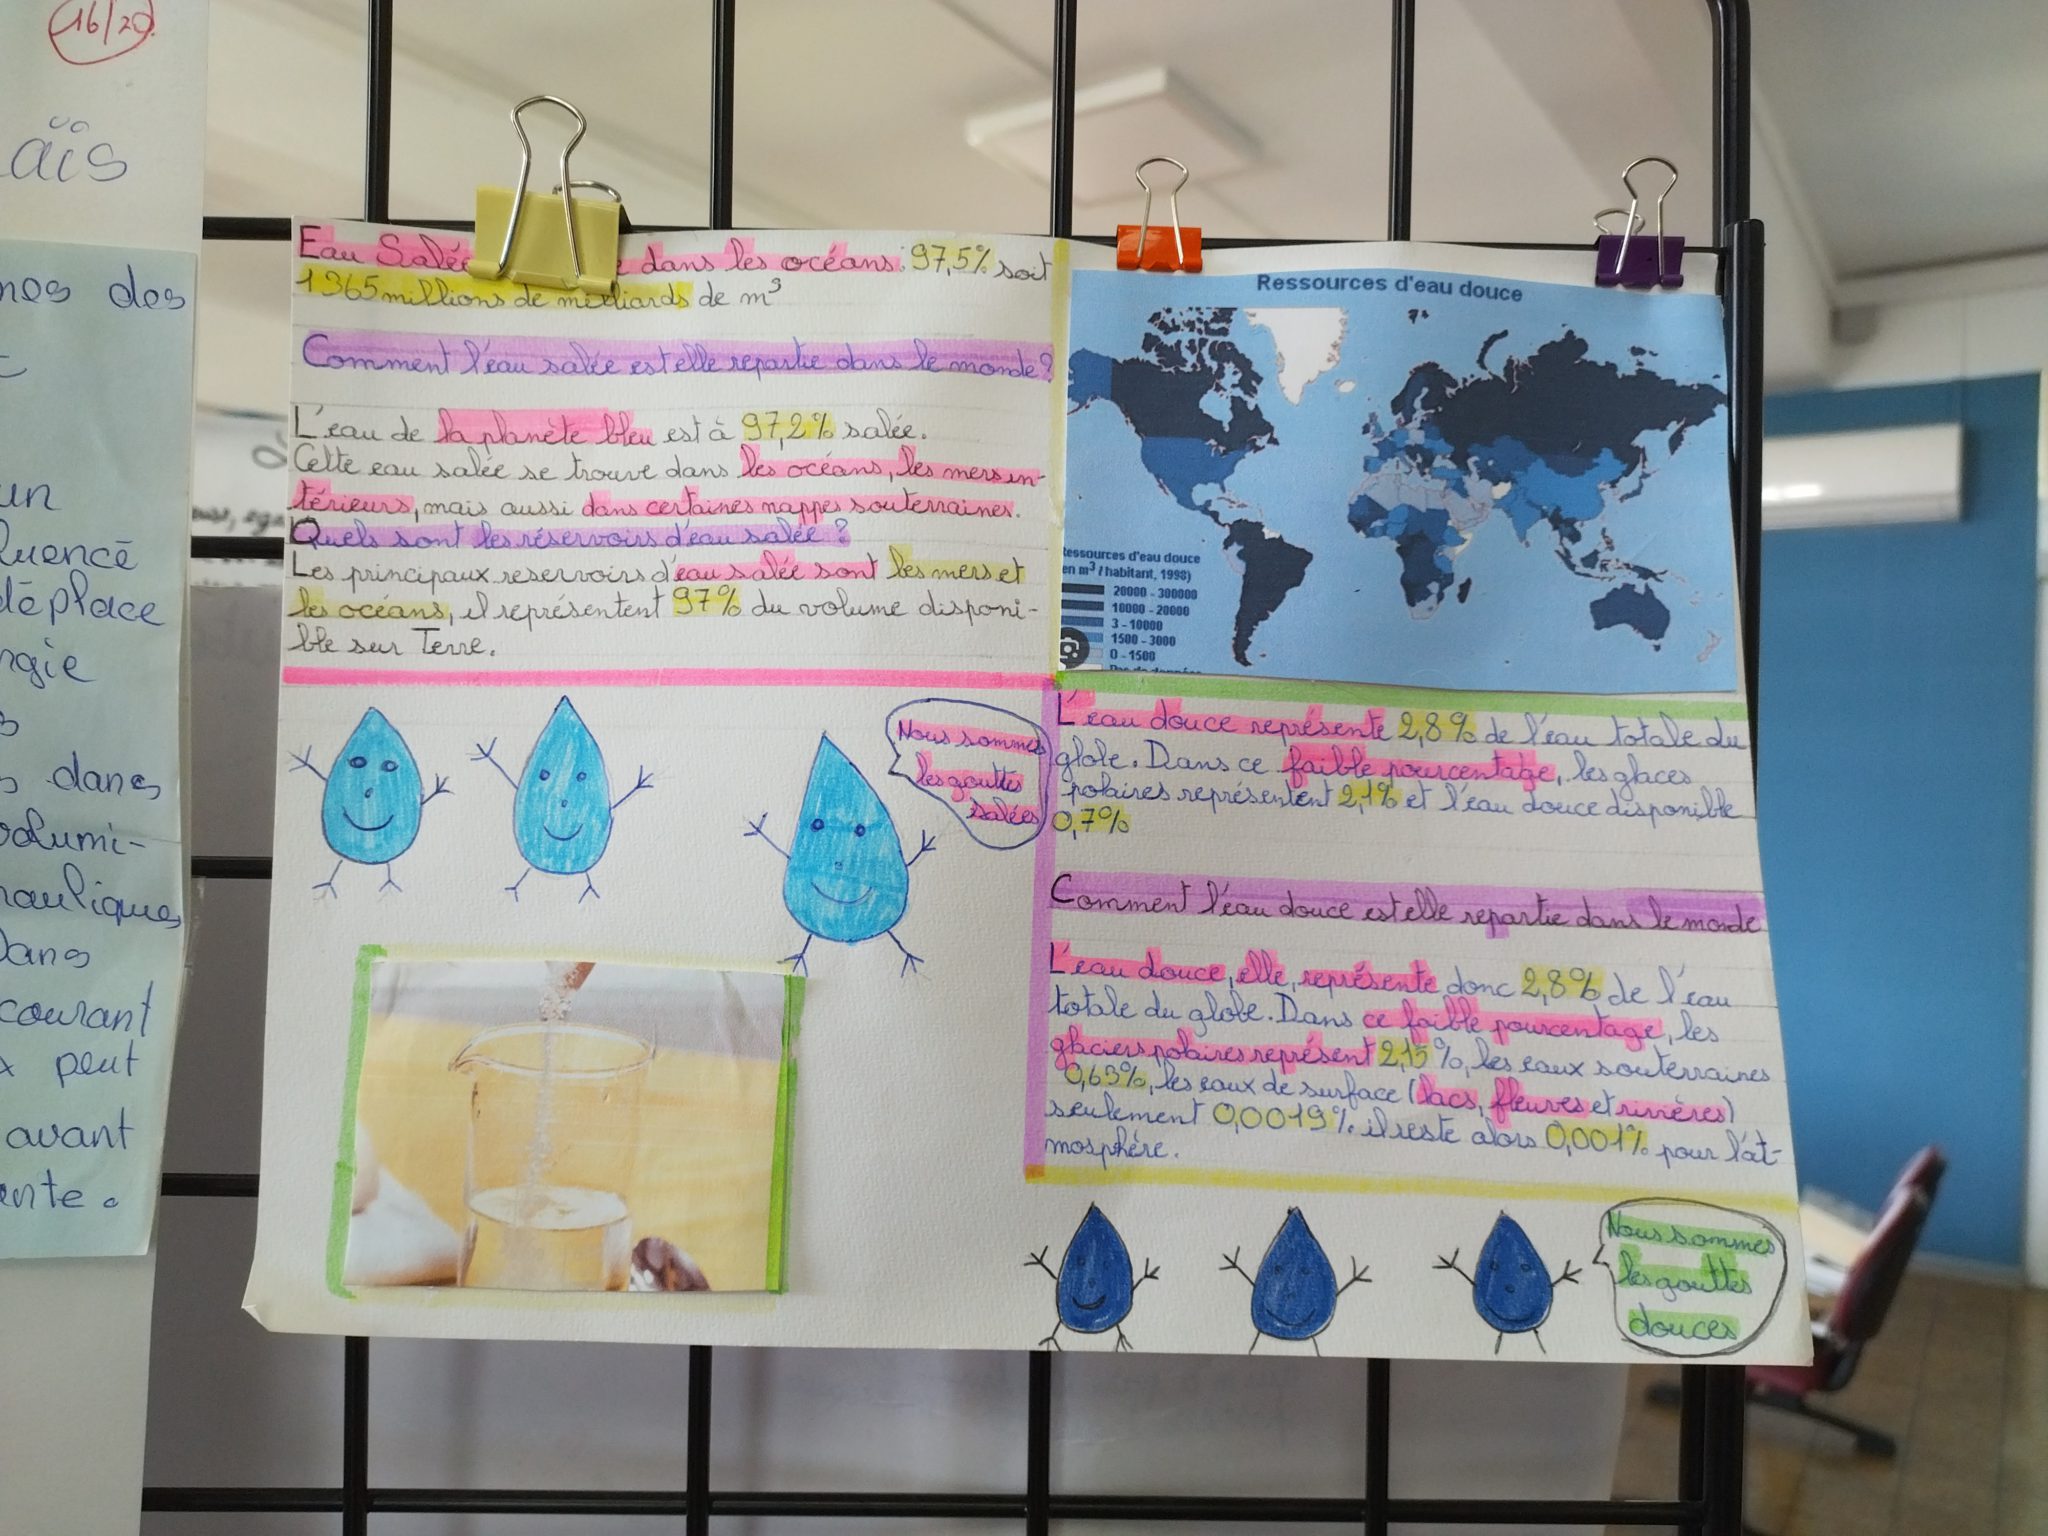 16/20
aïs
nes des
un
luencé
déplace
rgie
s dans
volumi-
rauliques
Dans
courant
x peut
avant
ante.
Eau Salée dans les océans : 97,5% soit
1365 millions de milliards de m³
Comment l'eau salée est elle repartie dans le monde ?
L'eau de la planète bleu est à 97,2% salée.
Cette eau salée se trouve dans les océans, les mers in-
térieurs, mais aussi dans certaines nappes souterraines.
Quels sont les réservoirs d'eau salée ?
Les principaux reservoirs d'eau salée sont les mers et
les océans, il représentent 97% du volume disponi-
ble sur Terre.
Nous sommes
les gouttes
salées
Ressources d'eau douce
Ressources d'eau douce
en m³ / habitant, 1998)
20000 - 300000
10000 - 20000
3 - 10000
1500 - 3000
0 - 1500
Pas de données
L'eau douce représente 2,8% de l'eau totale du
globe. Dans ce faible pourcentage, les glaces
polaires représentent 2,1% et l'eau douce disponible
0,7%
Comment l'eau douce est elle repartie dans le monde
L'eau douce, elle, représente donc 2,8% de l'eau
totale du globe. Dans ce faible pourcentage, les
glaciers polaires représent 2,15%, les eaux souterraines
0,63%, les eaux de surface (lacs, fleuves et rivières)
seulement 0,0019%. il reste alors 0,001% pour l'at-
mosphère.
Nous sommes
les gouttes
douces